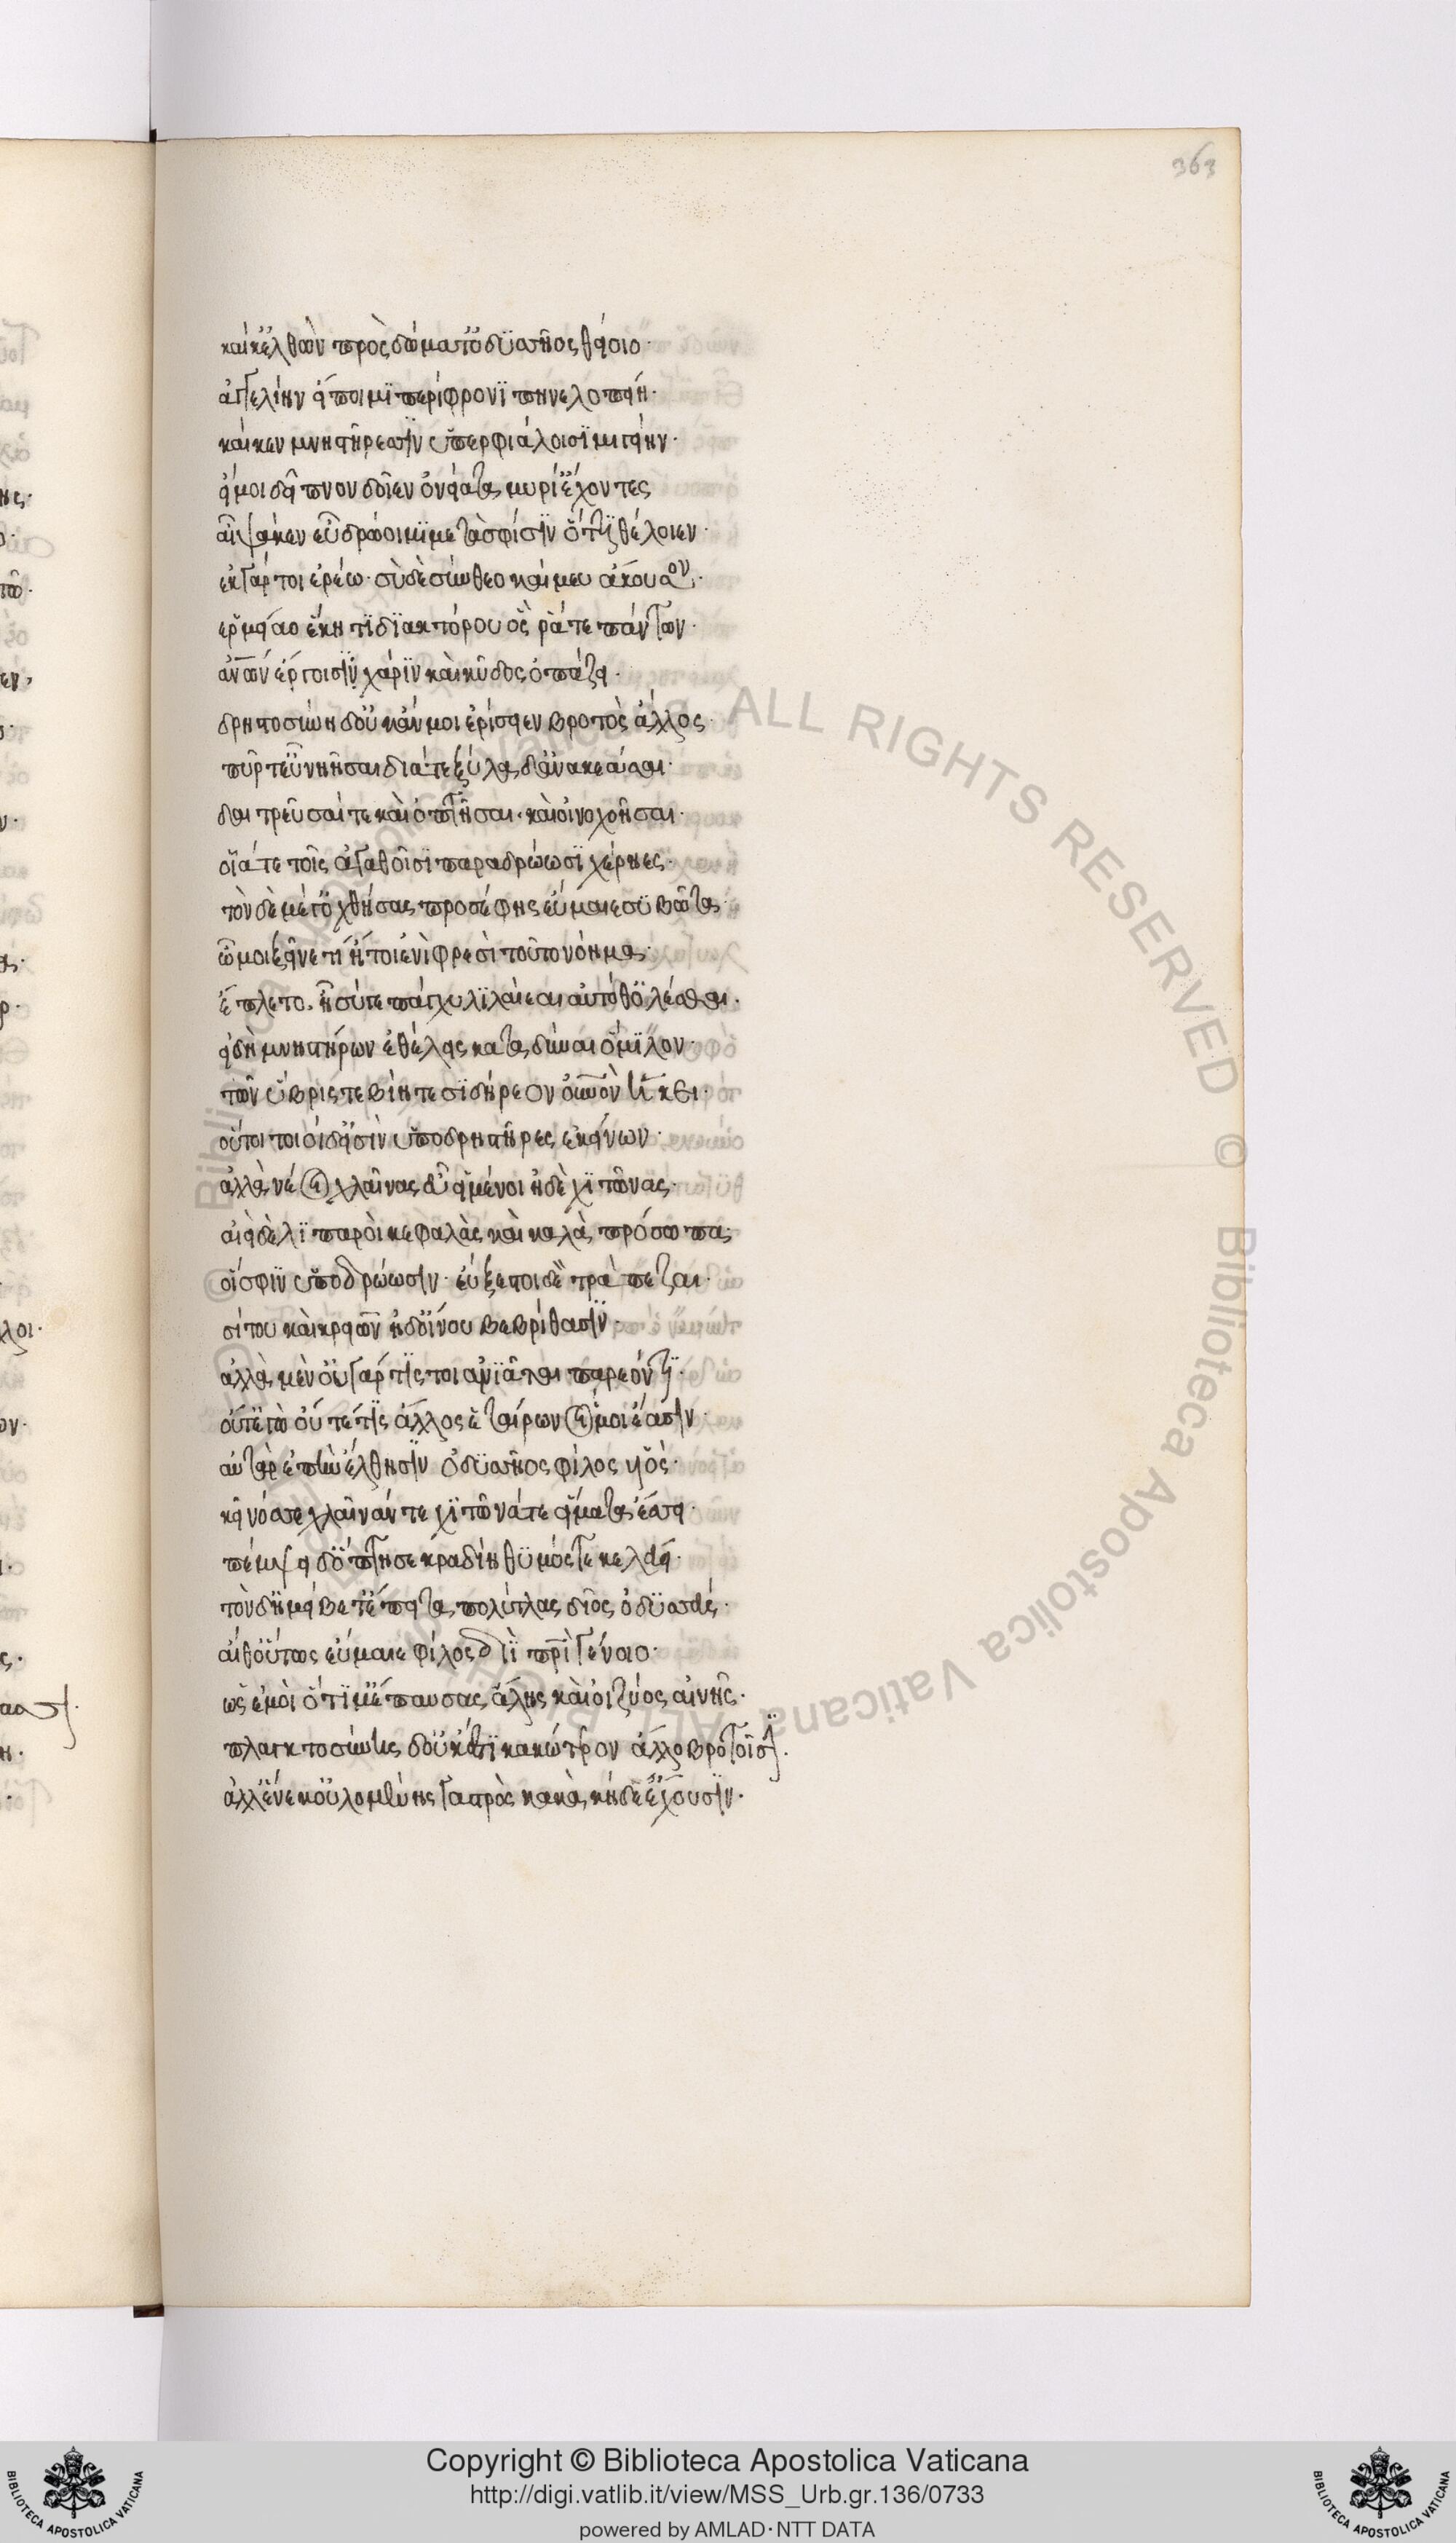 363
καί κ' ἐλθὼν πρὸς δώματ' ὀδυσσῆος θείοιο·
ἀγγελίην εἴποιμι περίφρονι πηνελοπείη·
καί κεν μνηστήρεσσιν ὑπερφιάλοισι μιγείην·
εἴ μοι δεῖπνον δοῖεν ὀνείατα μυρί' ἔχοντες
αἶψά κεν εὖ δρώοιμι μετὰ σφίσιν ὅττι θέλοιεν·
ἐκ γάρ τοι ἐρέω· σὺ δὲ σύνθεο καί μευ ἄκουσον·
ἑρμείαο ἕκητι διακτόρου ὅς ῥά τε πάντων·
ἀνων ἔργοισιν χάριν καὶ κῦδος ὀπάζει·
δρηστοσύνη δ' οὐκ ἄν μοι ἐρίσειεν βροτὸς ἄλλος·
πῦρ τ' εὖ νηῆσαι διά τε ξύλα δανὰ κεάσσαι·
δαιτρεῦσαί τε καὶ ὀπτῆσαι· καὶ οἰνοχοῆσαι·
οἷά τε τοῖς ἀγαθοῖσι παραδρώωσι χέρηες·
τὸν δὲ μέγ' ὀχθήσας προσέφης εὔμαιε συβῶτα·
ὤμοι ξεῖνε τίη τοι ἐνὶ φρεσὶ τοῦτο νόημα·
ἔπλετο· ἦ σύ τε πάγχυ λιλαίεαι αὐτόθ' ὀλέσθαι·
εἰ δὴ μνηστήρων ἐθέλεις καταδῦναι ὅμιλον·
τῶν ὕβρις τε βίη τε σιδήρεον οὐνον ἥκει·
οὔτοι τοιοίδ' εἰσὶν ὑποδρηστῆρες ἐκείνων·
ἀλλὰ νέοι χλαίνας εὖ εἱμένοι ἠδὲ χιτῶνας·
αἰεὶ δὲ λιπαροὶ κεφαλὰς καὶ καλὰ πρόσωπα·
οἵ σφιν ὑποδρώωσιν· ἐύξεστοι δὲ τράπεζαι·
σίτου καὶ κρειῶν ἠδ' οἴνου βεβρίθασιν·
ἀλλὰ μέν' οὐ γάρ τίς τοι ἀνιᾶται παρεόντι·
οὔτ' ἐγὼ οὔτέ τις ἄλλος ἑταίρων οἵ μοι ἔασιν·
αὐτὰρ ἐπὴν ἔλθησιν ὀδυσσῆος φίλος υἱός·
κεῖνός σε χλαῖνάν τε χιτῶνά τε εἵματα ἕσσει·
πέμψει δ' ὅππη σε κραδίη θυμός τε κελεύει·
τὸν δ' ἠμείβετ' ἔπειτα πολύτλας δῖος ὀδυσσεύς·
αἴθ' οὕτως εὔμαιε φίλος διὶ πρὶ γένοιο·
ὡς ἐμοὶ ὅττι μ' ἔπαυσας ἄλης καὶ ὀιζύος αἰνῆς·
πλαγκτοσύνης δ' οὐκ ἔστι κακώτερον ἄλλο βροτοῖσι·
ἀλλ' ἕνεκ' οὐλομένης γαστρὸς κακὰ κήδε' ἔχουσιν·
Copyright © Biblioteca Apostolica Vaticana
http://digi.vatlib.it/view/MSS_Urb.gr.136/0733
powered by AMLAD·NTT DATA